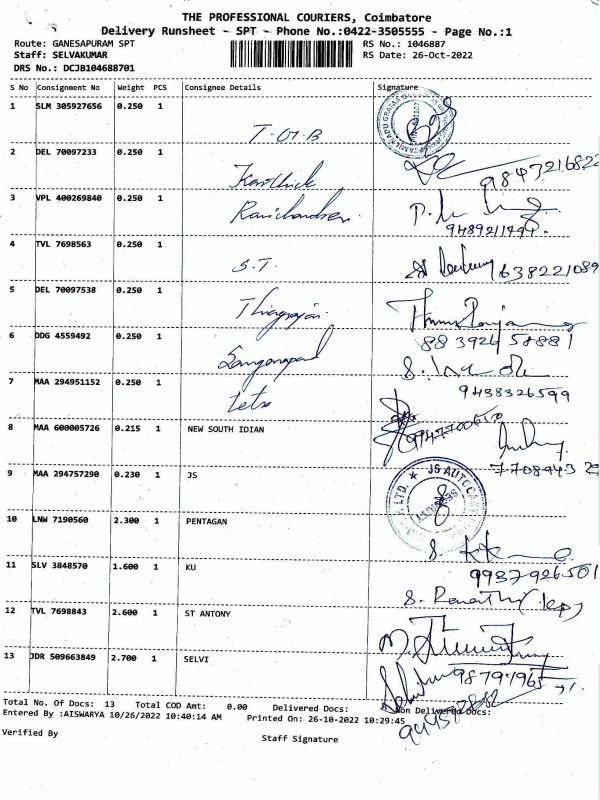 THE PROFESSIONAL COURIERS, Coimbatore
Delivery Runsheet - SPT - Phone No.:0422-3505555 - Page No.:1
Route: GANESAPURAM SPT RS No.: 1046887
Staff: SELVAKUMAR RS Date: 26-Oct-2022
DRS No.: DCJB104688701
S No Consignment No Weight PCS Consignee Details Signature
1 SLM 305927656 0.250 1
T.O.B
2 DEL 70097233 0.250 1
Karthick 9847216822
3 VPL 400269840 0.250 1
Ravichandran
4 TVL 7698563 0.250 1
S.T. 638221089
5 DEL 70097538 0.250 1
Thiagrajan
6 DDG 4559492 0.250 1 88 3924 58881
7 MAA 294951152 0.250 1
9438326599
8 MAA 600005726 0.215 1 NEW SOUTH IDIAN
9 MAA 294757290 0.230 1 JS
JS AUTOCAST
10 LNW 7190560 2.300 1 PENTAGAN
11 SLV 3848570 1.600 1 KU 9937926501
12 TVL 7698843 2.600 1 ST ANTONY
13 JDR 509663849 2.700 1 SELVI
Total No. Of Docs: 13 Total COD Amt: 0.00 Delivered Docs: Non Delivered Docs:
Entered By :AISWARYA 10/26/2022 10:40:14 AM Printed On: 26-10-2022 10:29:45
Verified By Staff Signature